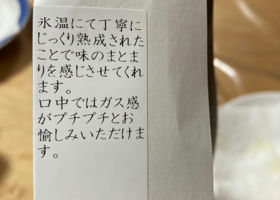 氷温にて丁寧に
じっくり熟成された
ことで味のまとま
りを感じさせてくれ
ます。
口中ではガス感
がプチプチとお
愉しみいただけま
す。